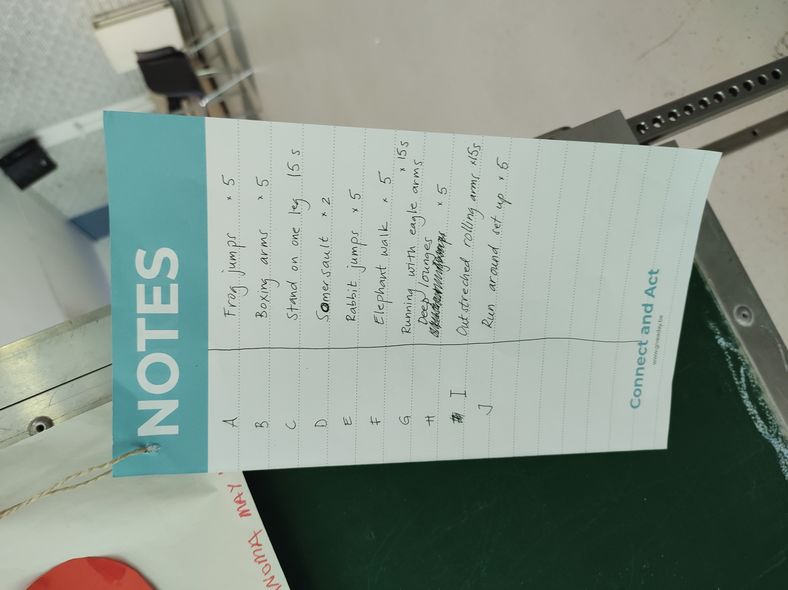 NOTES
A Frog jumps × 5
B Boxing arms × 5
C Stand on one leg 15 s
D Somersault × 2
E Rabbit jumps × 5
F Elephant walk × 5
G Running with eagle arms × 15s
H Deep lounges × 5
I Outstreched rolling arms ×15s
J Run around set up × 5
Connect and Act
MAY